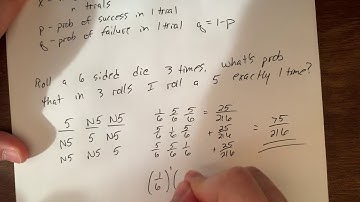 n trials
p - prob of success in 1 trial
q - prob of failure in 1 trial q = 1-p
Roll a 6 sided die 3 times, what's prob
that in 3 rolls I roll a 5 exactly 1 time?
5 N5 N5 1/6 5/6 5/6 = 25/216
N5 5 N5 5/6 1/6 5/6 + 25/216 = 75/216
N5 N5 5 5/6 5/6 1/6 + 25/216
(1/6)¹ (